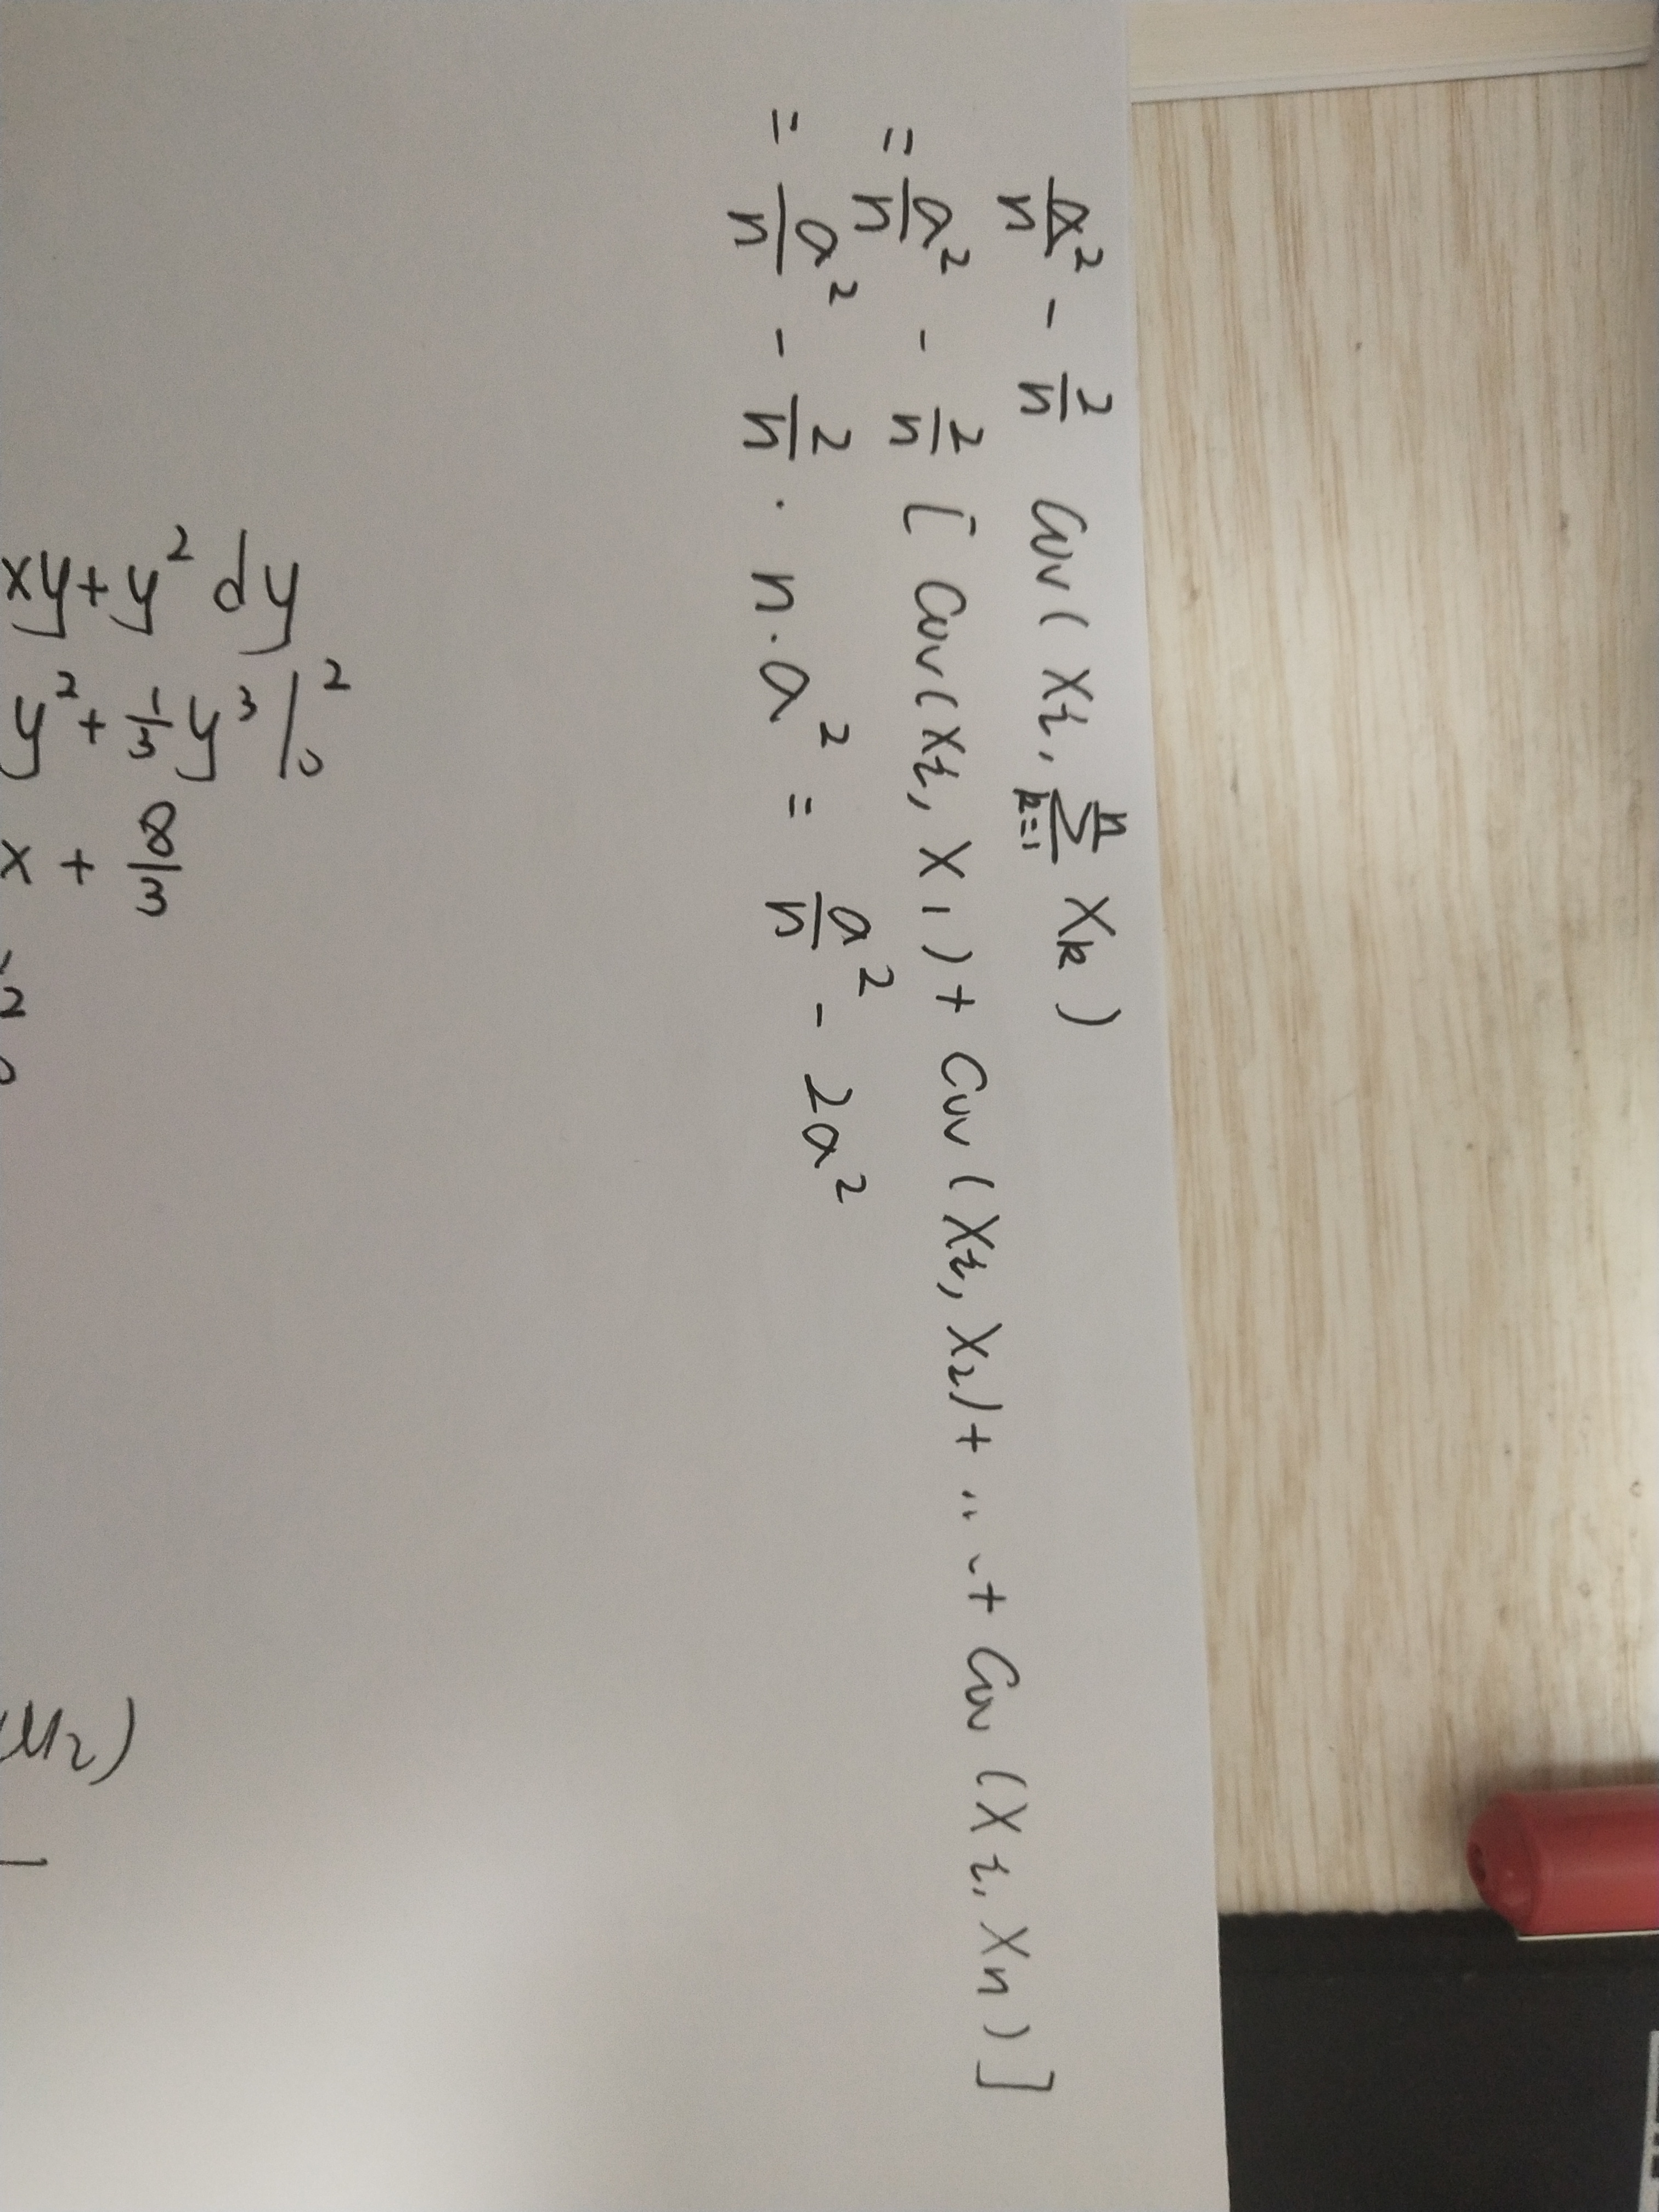 a²/n - 2/n Cov(Xi, n∑k=1 Xk)
= a²/n - 2/n [Cov(Xi, X1) + Cov(Xi, X2) + ... + Cov(Xi, Xn)]
= a²/n - 2/n · n · a² = a²/n - 2a²
xy+y² dy
y² + 1/3 y³ |₀²
x + 8/3
2